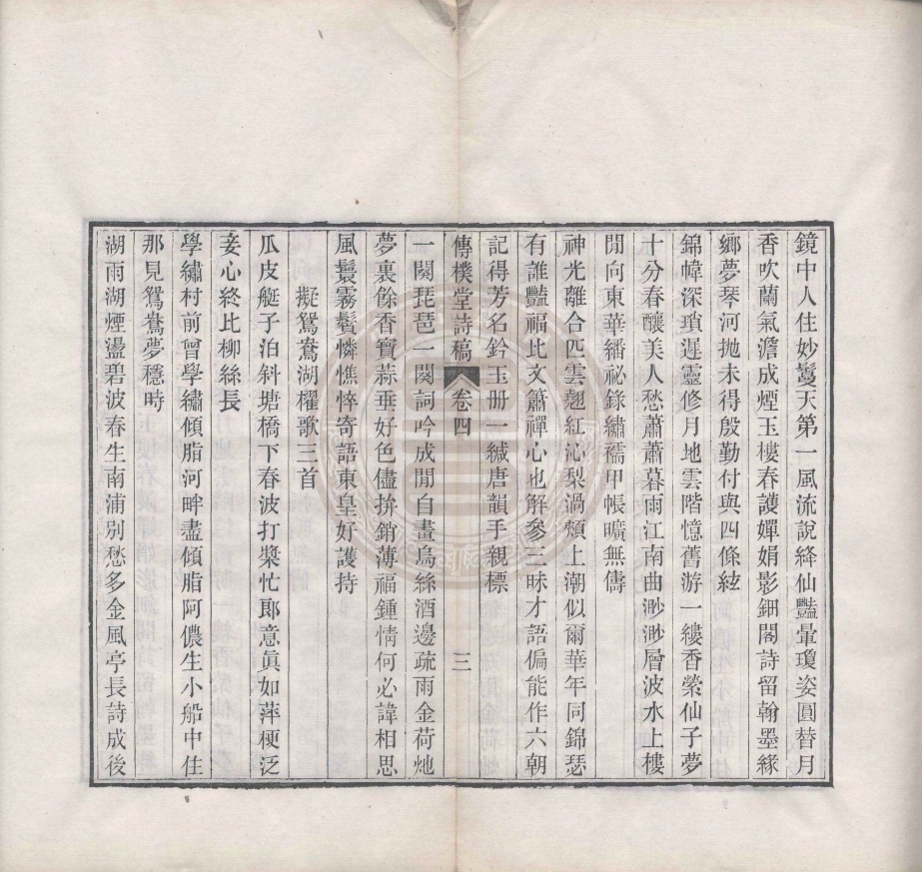 鏡中人住妙鬘天第一風流說絳仙豔暈瓊姿圓替月
香吹蘭氣澹成煙玉樓春護嬋娟影鈿閣詩留翰墨緣
鄉夢琴河拋未得殷勤付與四條絃
錦幃深瑣遲靈修月地雲階憶舊游一縷香縈仙子夢
十分春釀美人愁蕭蕭暮雨江南曲渺渺層波水上樓
閒向東華繙祕錄繡襦甲帳曠無儔
神光離合匹雲翹紅沁梨渦頰上潮似爾華年同錦瑟
有誰豔福比文簫禪心也解參三昧才語偏能作六朝
記得芳名鈐玉册一緘唐韻手親標
傳樸堂詩稿 卷四 三
一闋琵琶一闋詞吟成閒自畫烏絲酒邊疏雨金荷灺
夢裏餘香寶蒜垂好色儘拚銷薄福鍾情何必諱相思
風鬟霧鬢憐憔悴寄語東皇好護持
擬鴛鴦湖櫂歌三首
瓜皮艇子泊斜塘橋下春波打槳忙郎意眞如萍梗泛
妾心終比柳絲長
學繡村前曾學繡傾脂河畔盡傾脂阿儂生小船中住
那見鴛鴦夢穩時
湖雨湖煙盪碧波春生南浦別愁多金風亭長詩成後